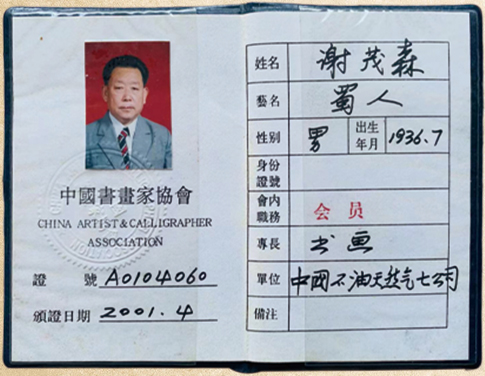 中國書畫家協會
CHINA ARTIST & CALLIGRAPHER
ASSOCIATION
證 號 A0104060
頒證日期 2001.4
姓名 谢茂森
藝名 蜀人
性别 男 出生年月 1936.7
身份證號
會内職務 会员
專長 书画
單位 中國石油天然气七公司
備注